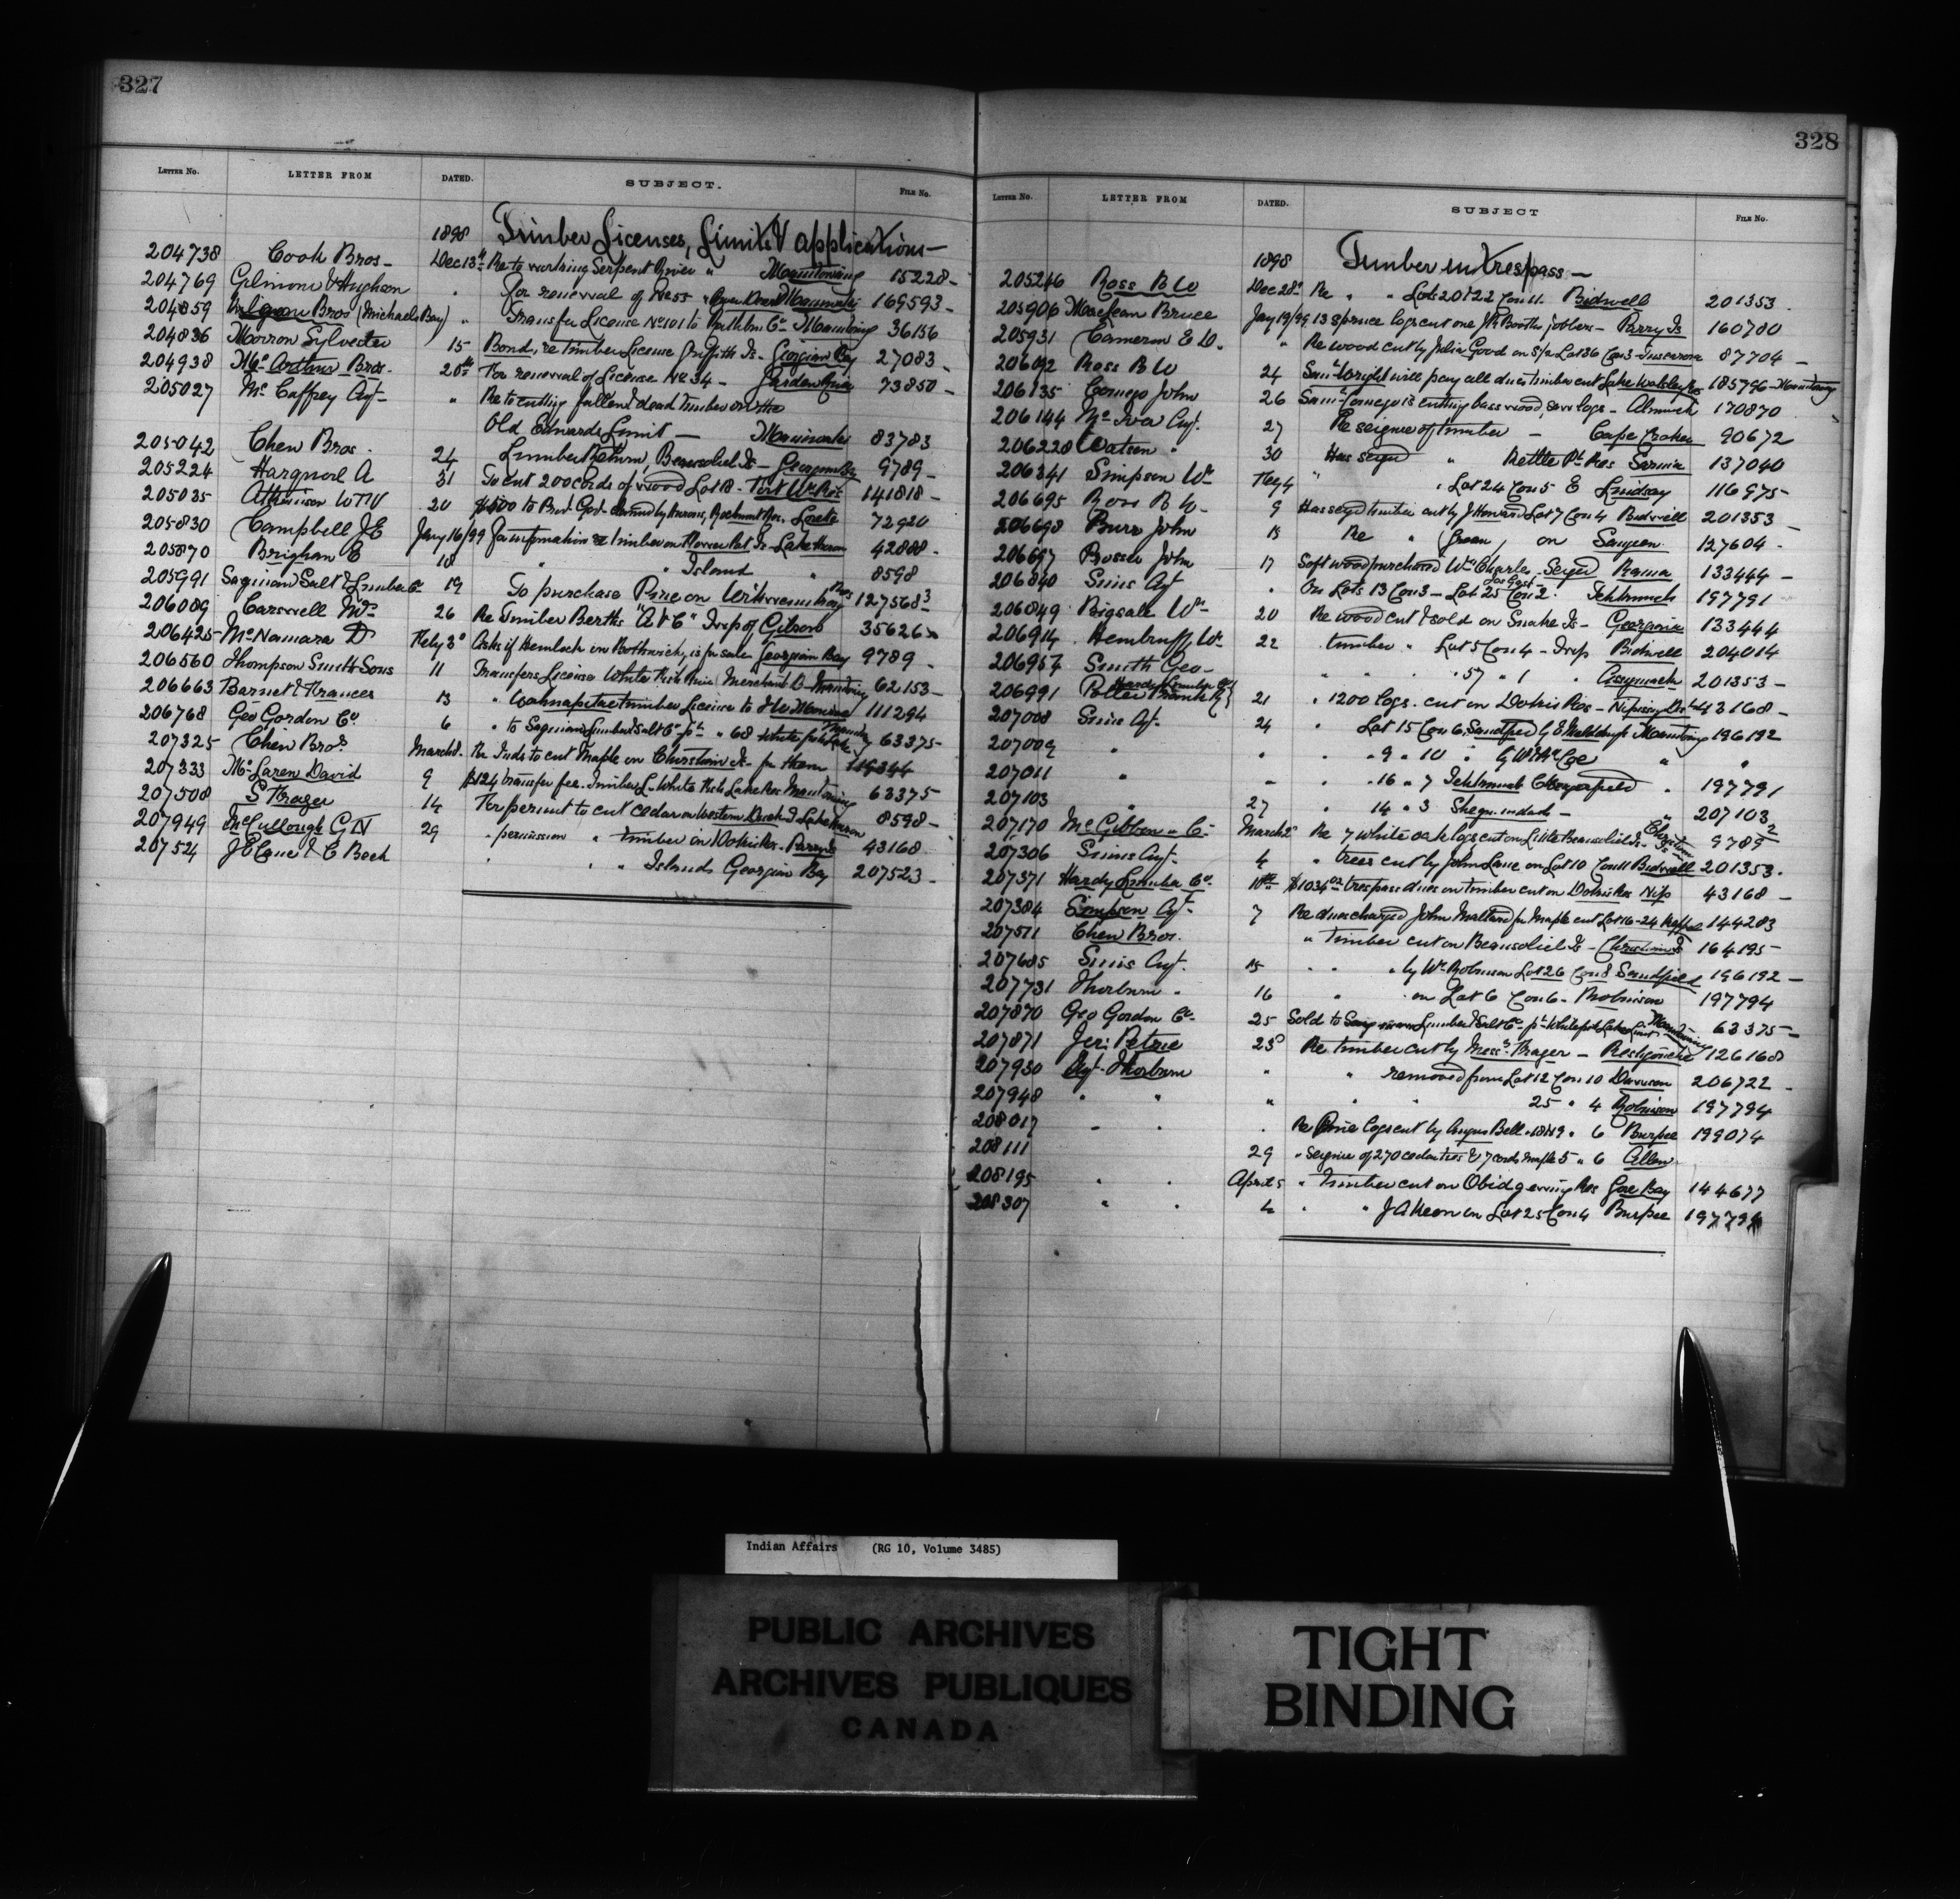 327
LETTER No. LETTER FROM DATED. SUBJECT. FILE No.
1898 Timber Licenses, Limits & applications—
204738 Cook Bros— Dec 13th Re to working Serpent River " Manitowaning 15228-
204769 Gilmour & Hughson " For renewal of No 55 " River Desert Maniwaki 169593-
204859 Bros (Michaels Bay) " Transfer License No 101 to Co Manitowaning 36156
204836 Morron Sylvester 15 Bond, re timber License Griffith Is- Georgian Bay 27083-
204938 McArthur Bros. 20th For renewal of License No 34- Garden River 73850-
205027 McCaffrey Agt- " Re to cutting fallen & dead timber on the
Old Edwards Limit — Maniwaki 83783
205042 Chew Bros. 24 Timber Return, Beausoliel Is- Georgian Bay 9789-
205224 A 31 To cut 200 cords of wood Lot 18- Fort Wm Res 141818-
205035 Atkinson W T W 20 $400 to by Hurons, Rocmont Res. Lorette 72920
205830 Campbell J E Jany 16/99 For information re timber on Flower Pot Is- Lake Huron 42888-
205870 Brigham E 18 " Island " 8598
205991 Saginaw Salt & Lumber Co 19 To purchase Pine on Res 127568³
206089 Carswell Wm 26 Re Timber Berths "A & C" Trp of Gibson 35626
206425 McNamara D Feby 3d Asks if Hemlock in Bothwick, is for sale Georgian Bay 9789-
206560 Thompson Smith Sons 11 Transfers License White Fish River (Merchant 62153-
206663 Barnet & Frances 13 " Wahnapitae timber License to 111294
206768 Geo Gordon Co 6 " to Saginaw Lumber & Salt Co- pt " 68 White fish Lake 63375-
207325 Chew Bros March 8. Re Inds to cut Maple on Christian Is- for them 119344
207333 McLaren David 9 $124 transfer fee. Timber L. White Fish Lake Res Manitowaning 63375-
207508 S Frager 14 For permit to cut cedar on Western Duck I Lake Huron 8598-
207949 McCullough G N 29 " permission " timber in Dokis Res- Parry Sd 43168
207524 J E Cane & C Beck " " Islands Georgian Bay 207523-
328
LETTER No. LETTER FROM DATED. SUBJECT FILE No.
1898 Timber in trespass—
205246 Ross B W Dec 28th Re " " Lots 20 & 22 Con 11. Bidwell 201353
205906 MacLean Bruce Jany 19/99 13 spruce logs cut one J R Booths jobbers- Parry Is 160700
205931 Cameron E D. " Re wood cut by Julia Good on S/2 Lot 36 Con 3- Tuscarora 87704-
206092 Ross B W 24 Saml Wright will pay all dues timber cut Lake Wolsley Res 185796- Manitowaning
206135 Comego John 26 Sam Comego is cutting basswood, saw logs- Alnwick 170870
206144 McIvor Agt. 27 Re seizure of timber — Cape Croker 90672
206228 Watson " 30 Has seized " Kettle Pt Res Sarnia 137040
206341 Simpson Wm Feby 4 " " Lot 24 Con 5 E Lindsay 116975-
206695 Ross B W- 9 Has seized timber cut by J Howard Lot 7 Con 4 Bidwell 201353-
206698 Burr John 13 Re " (Green) on Saugeen 127604-
206697 Bosse John 17 Soft wood purchased Wm Charles- Seized Rama 133444-
206840 Sims Agt " On Lots 13 Con 3- Lot 25 Con 2. Tehkumah 197791
206849 Bigsail Wm- 20 Re wood cut & sold on Snake Is- Georgina 133444
206914 Hembruff Wm 22 " timber " Lot 5 Con 4- Trp Bidwell 204014
206957 Smith Geo- " " " 57 " 1 " Assiginack 201353-
206991 Potter Frank Hardy Lumber Co 21 " 1200 logs. cut on Dokis Res- Nipissing Dist 43168-
207008 Sims Agt. 24 " Lot 15 Con 6, Sandfield by E Manitowaning 196192
207009 " " " 9 " 10 " G W McCoe " "
207011 " " " 16 " 7 Tehkumah " 197791
207103 " 27 " 14 " 3 Sheguiandah — " 207103
207170 McGibbon " C- March 2 Re 7 white oak logs cut on Little Beausoliel Is- Christian Is 9789²
207306 Sims Agt- 4 " trees cut by John Lane on Lot 10 Con 11 Bidwell 201353.
207371 Hardy Lumber Co. 10th $1034 trespass dues on timber cut on Dokis Res Nip 43168-
207384 Simpson Agt- 7 Re dues charged John Mallard for Maple cut Lot 16-24 Keppel 144283
207511 Chew Bros. " timber cut on Beausoliel Is- Christian Is 164195-
207685 Sims Agt. 15 " " " by Wm Robinson Lot 26 Con 8 Sandfield 196192-
207731 Thorburn " 16 " " on Lot 6 Con 6- Robinson 197794
207870 Geo Gordon Co- 25 Sold to Saginaw Lumber & Salt Co- pt Whitefish Lake Limit Manitowaning 63375-
207871 Jer: Petrie 23d Re timber cut by Messrs Frager — Restigouche 126168
207930 Agt- Thorburn " " removed from Lot 12 Con 10 Dawson 206722
207948 " " " " 25 " 4 Robinson 197794
208017 " " " Re Pine logs cut by Angus Bell- 18 & 19 " 6 Burpee 199074
208111 29 " seizure of 270 cedar ties & 7 cords maple 5 " 6 Allen
208195 " " April 5 " timber cut on Obidgewong Res Gore Bay 144677
208307 " " 4 " " J A Keon on Lot 25 Con 4 Burpee 197794
Indian Affairs (RG 10, Volume 3485)
PUBLIC ARCHIVES
ARCHIVES PUBLIQUES
CANADA
TIGHT
BINDING